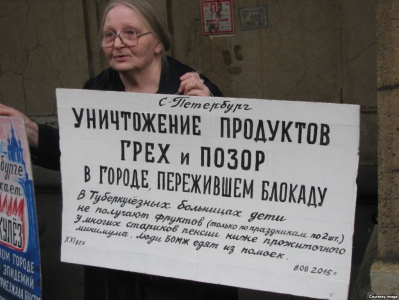 С-Петербург
УНИЧТОЖЕНИЕ ПРОДУКТОВ
ГРЕХ и ПОЗОР
В ГОРОДЕ, ПЕРЕЖИВШЕМ БЛОКАДУ
В Туберкулёзных больницах дети
не получают фруктов (только по праздникам по 2 шт.)
У многих стариков пенсии ниже прожиточного
минимума. Люди БОМЖ едят из помоек.
XXI век
8 08 2015 г
Courtesy Image